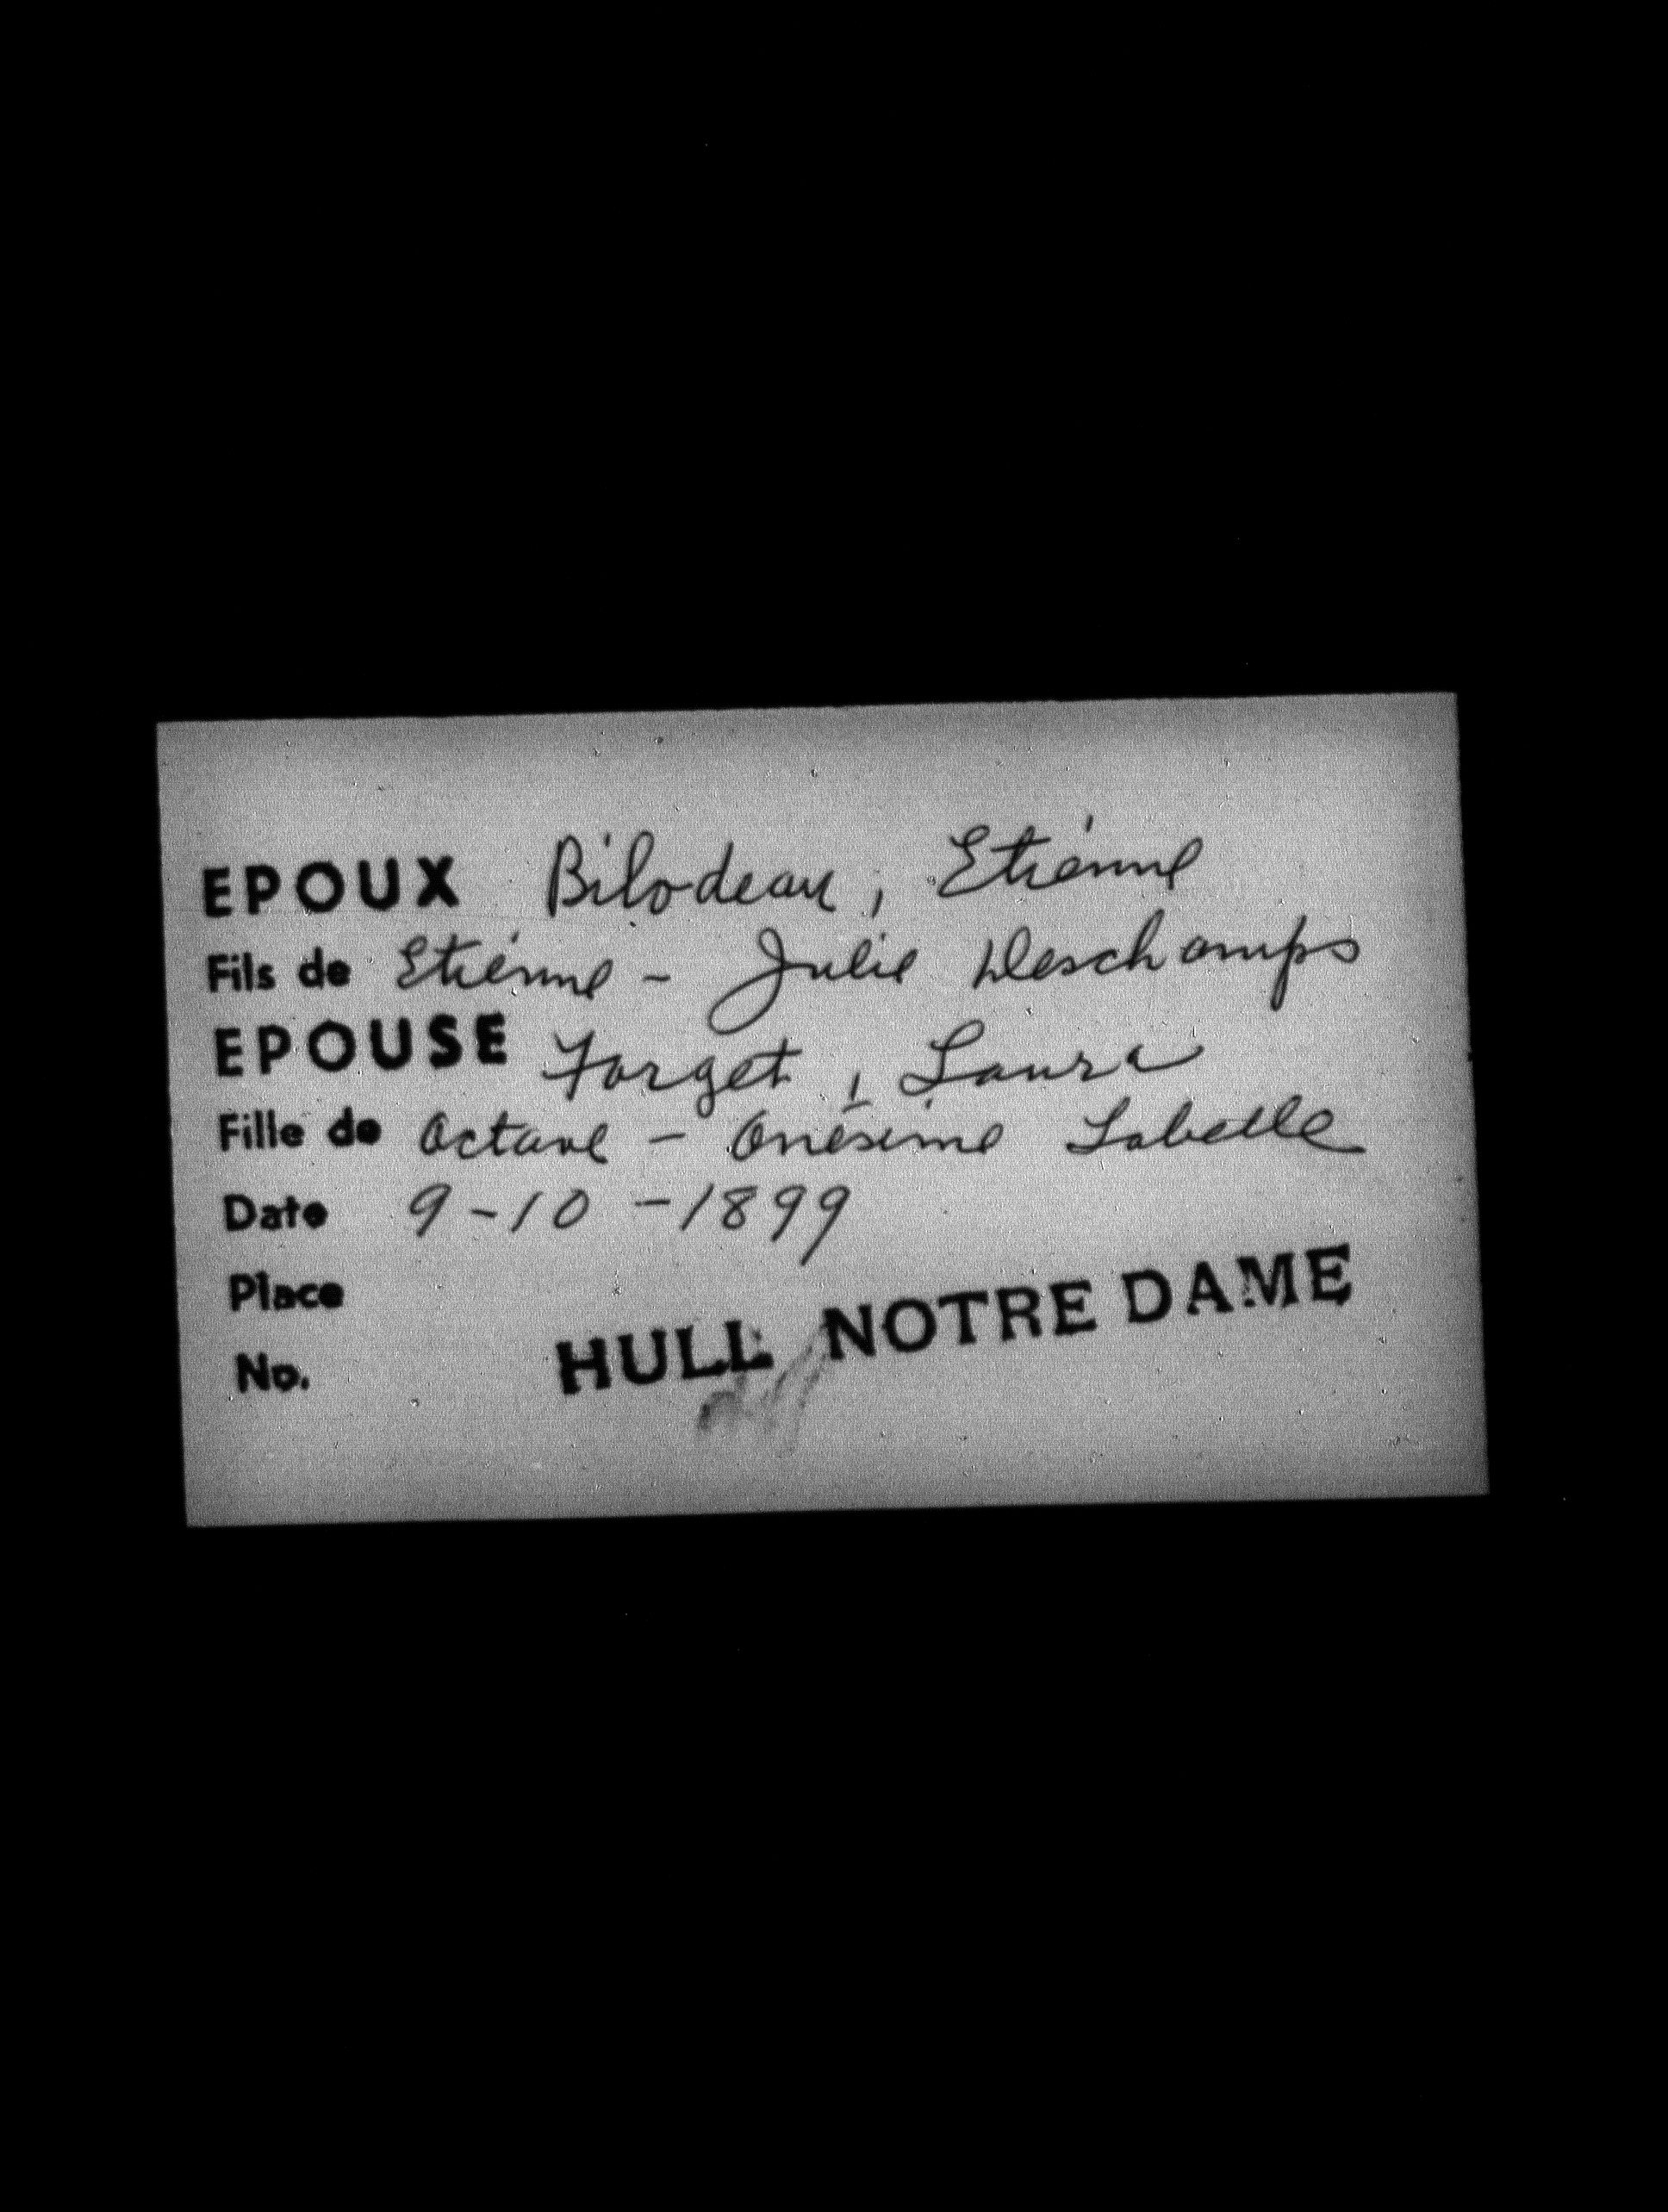 EPOUX Bilodeau, Etiénne
Fils de Etiénne - Julie Deschamps
EPOUSE Forget, Laura
Fille de Octave - Onésime Labelle
Date 9-10-1899
Place
HULL NOTRE DAME
No.